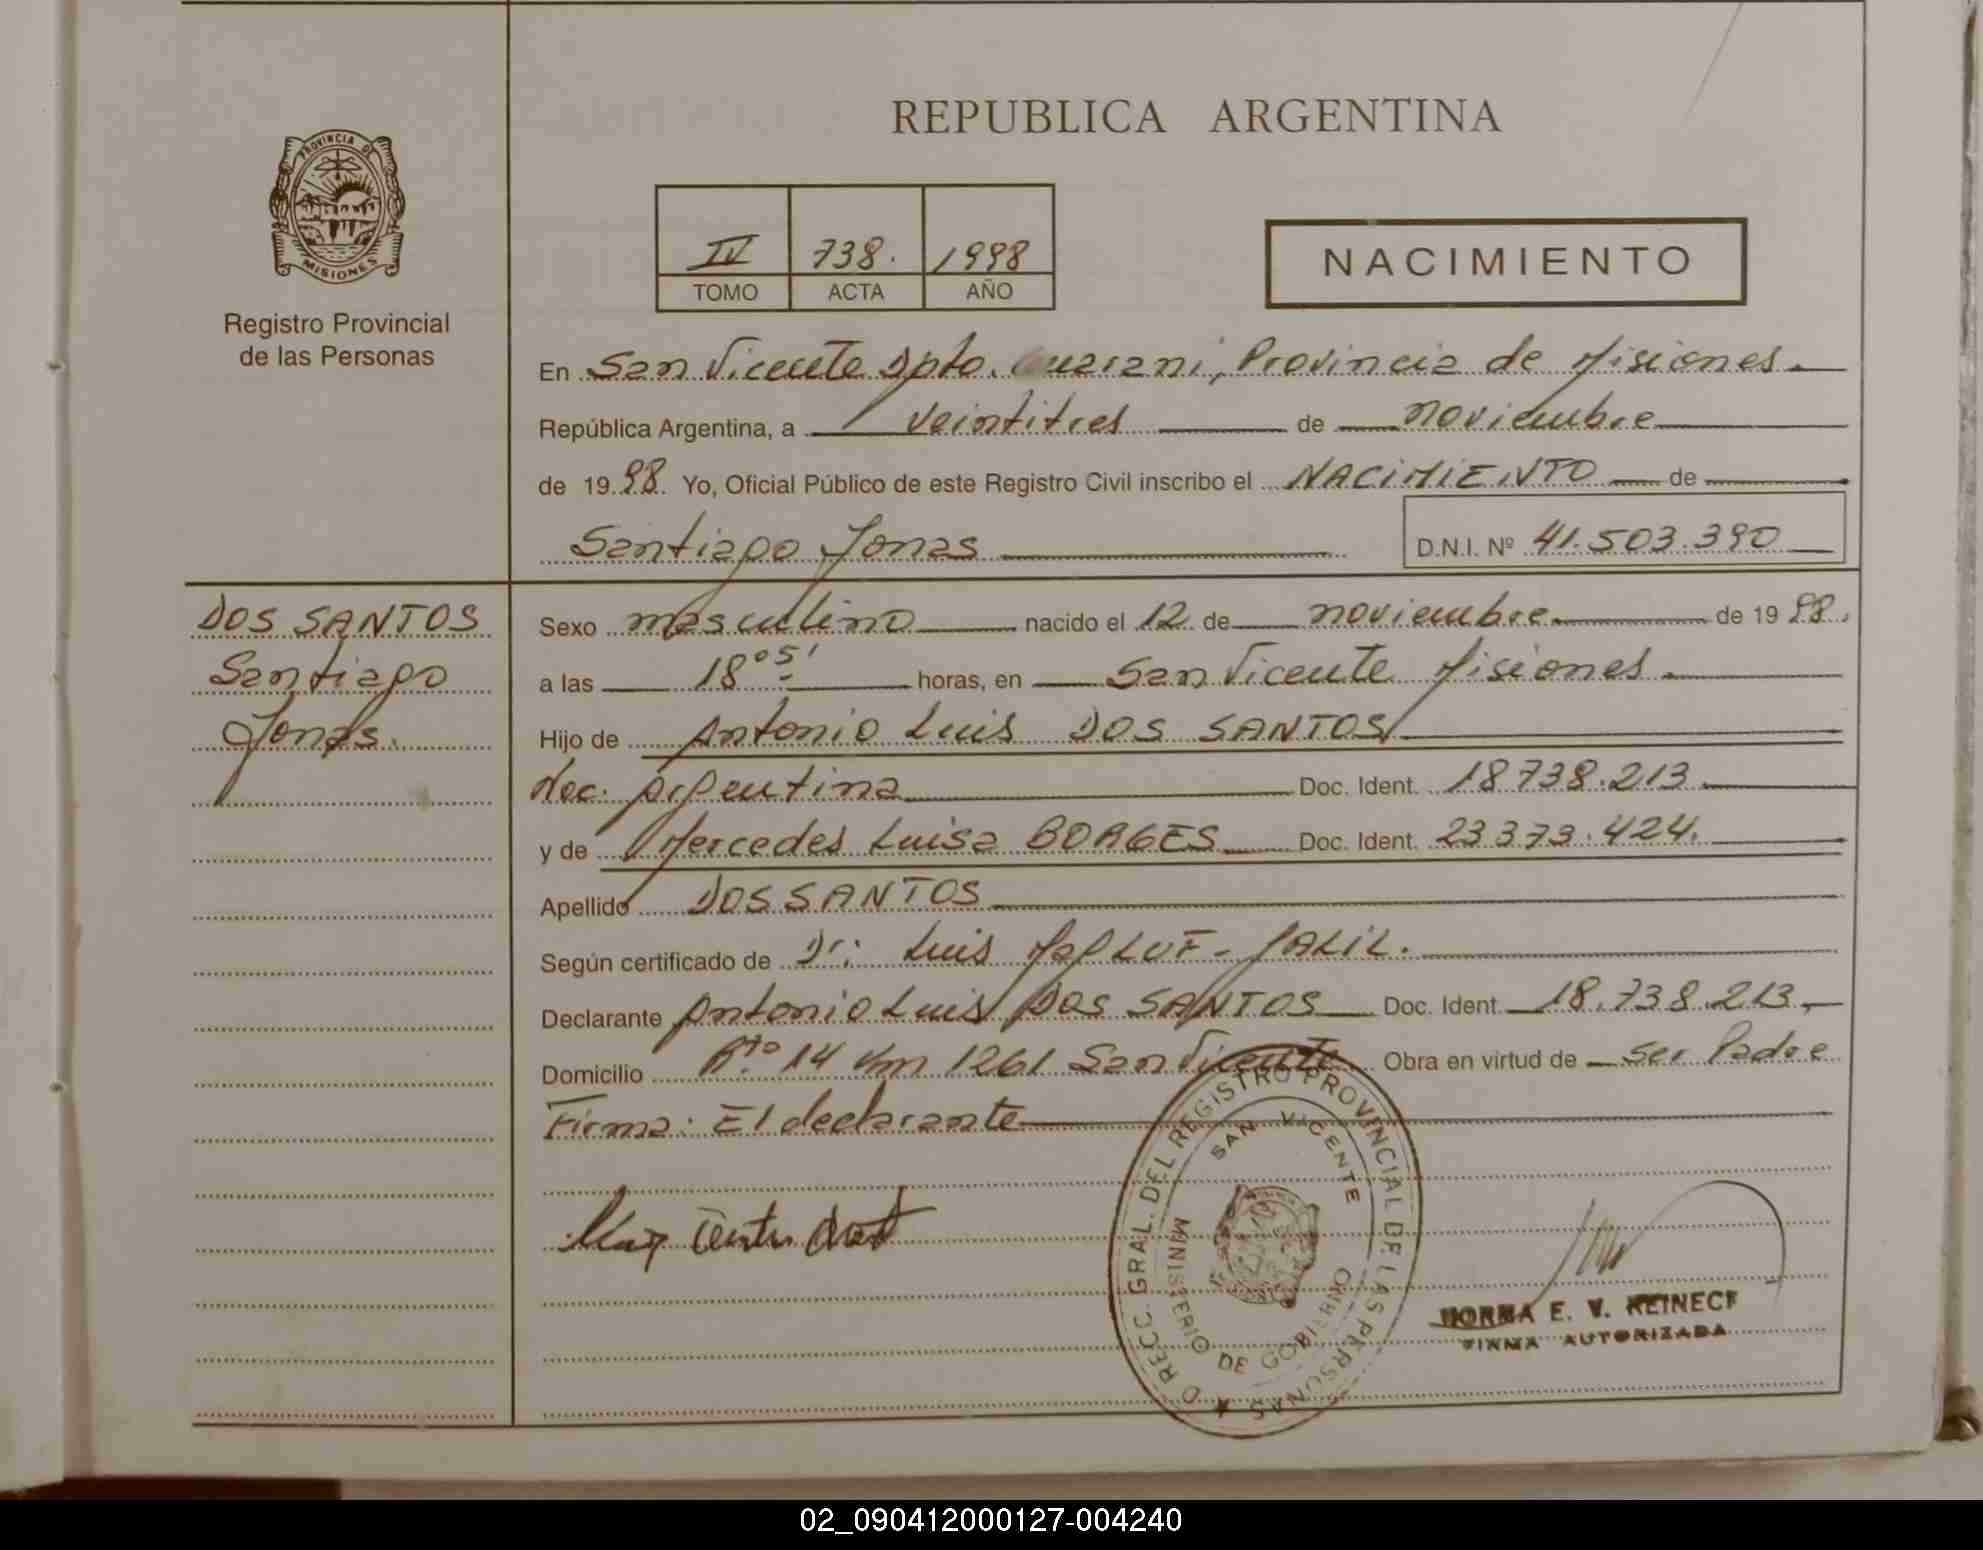 REPUBLICA ARGENTINA
PROVINCIA DE
MISIONES
Registro Provincial
de las Personas
IV 738. 1998
TOMO ACTA AÑO
NACIMIENTO
En San Vicente Dpto. Guarani, Provincia de Misiones.
República Argentina, a veintitres de noviembre
de 1998. Yo, Oficial Público de este Registro Civil inscribo el NACIMIENTO de
Santiago Jonas D.N.I. Nº 41.503.390
DOS SANTOS
Santiago
Jonas.
Sexo masculino nacido el 12 de noviembre de 1998.
a las 18°5' horas, en San Vicente Misiones.
Hijo de Antonio Luis DOS SANTOS
Nac. Argentina Doc. Ident. 18738.213.
y de Mercedes Luisa BORGES Doc. Ident. 23373.424.
Apellido DOS SANTOS
Según certificado de Dr: Luis JALIL.
Declarante Antonio Luis DOS SANTOS Doc. Ident. 18.738.213,
Domicilio Rta. 14 Km 1261 San Vicente Obra en virtud de ser Padre
Firma: El declarante
DIRECC. GRAL. DEL REGISTRO PROVINCIAL DE LAS PERSONAS
SAN VICENTE
MINISTERIO DE GOBIERNO
NORMA E. V. REINECK
FIRMA AUTORIZADA
02_090412000127-004240